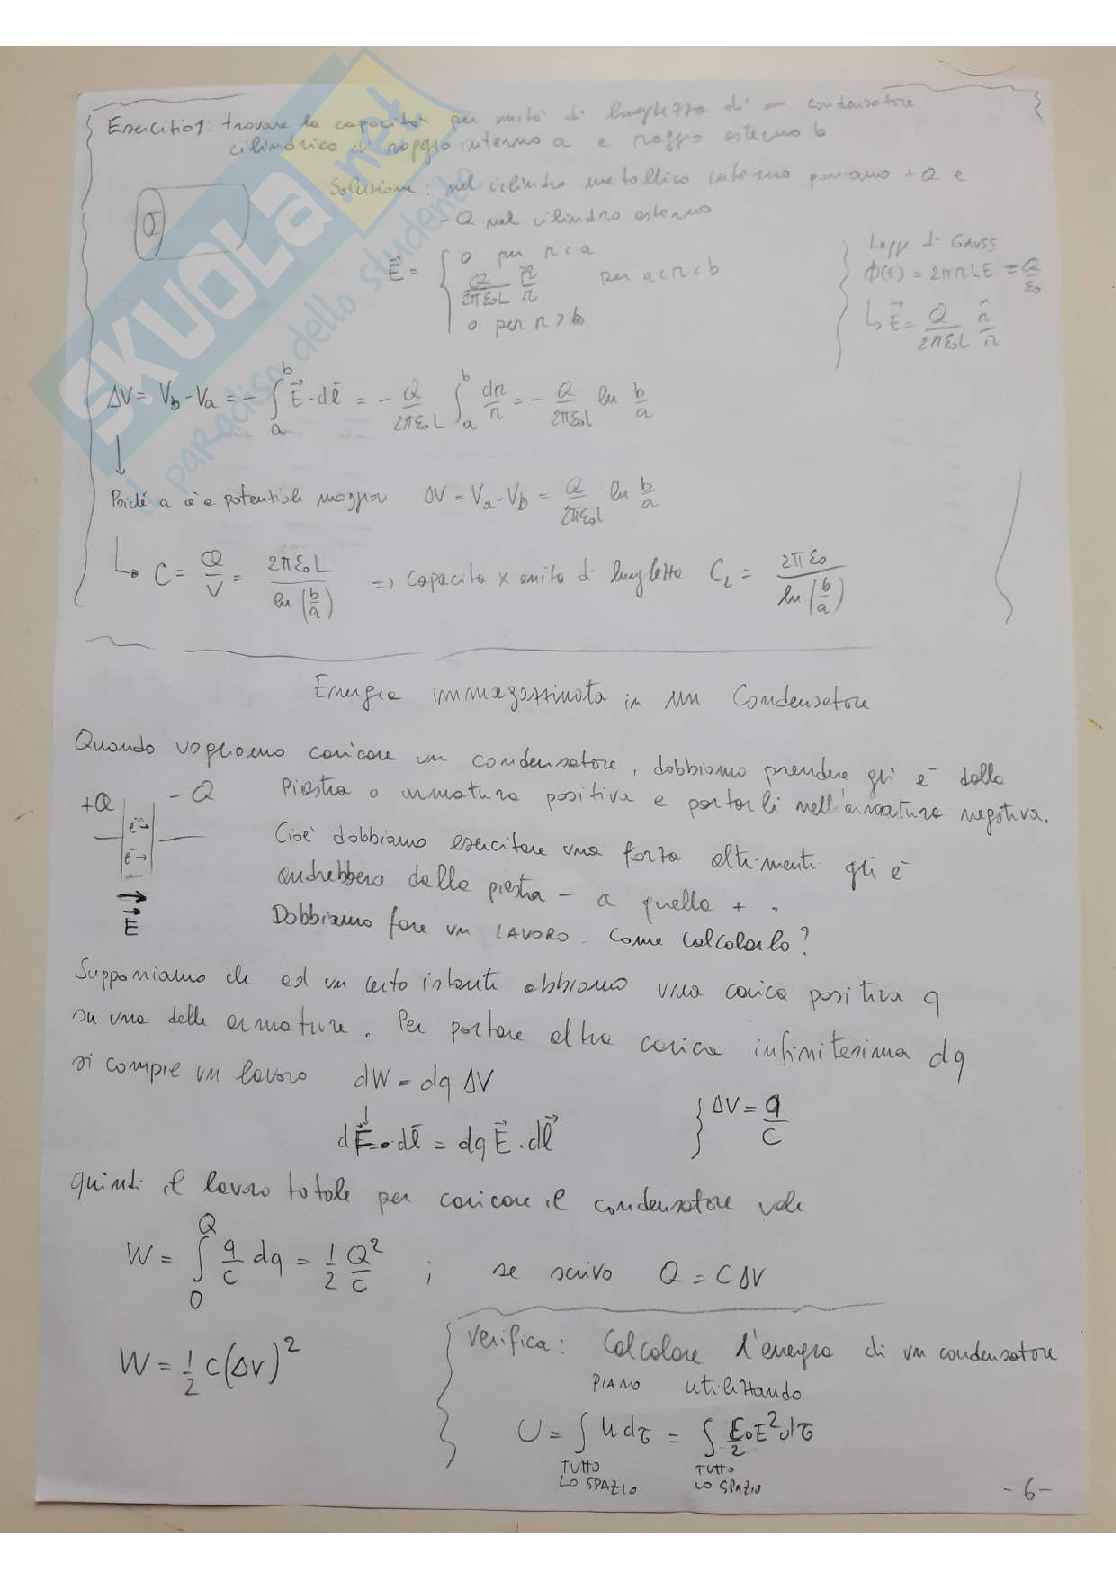 Esercizio: trovare la capacità per unità di lunghezza di un condensatore
cilindrico di raggio interno a e raggio esterno b
Soluzione: nel cilindro metallico interno poniamo +Q e
-Q nel cilindro esterno
E⃗ = { 0 per r<a
Q/2πε₀L r̂/r per a<r<b
0 per r>b
Legge di Gauss
Φ(E) = 2πrLE = Q/ε₀
↳ E⃗ = Q/2πε₀L r̂/r
ΔV = V_b - V_a = - ∫_a^b E⃗·dl⃗ = - Q/2πε₀L ∫_a^b dr/r = - Q/2πε₀L ln b/a
↓
Poiché a è a potenziale maggior ΔV = V_a - V_b = Q/2πε₀L ln b/a
↳ C = Q/V = 2πε₀L/ln(b/a) => capacità x unità di lunghezza C_L = 2πε₀/ln(b/a)
Energia immagazzinata in un Condensatore
Quando vogliamo caricare un condensatore, dobbiamo prendere gli e⁻ dalla
piastra o armatura positiva e portarli nell'armatura negativa.
+Q -Q
e⁻→
e⁻→
E⃗
Cioè dobbiamo esercitare una forza altrimenti gli e⁻
andrebbero dalla piastra - a quella +.
Dobbiamo fare un LAVORO. Come calcolarlo?
Supponiamo che ad un certo istante abbiamo una carica positiva q
su una delle armature. Per portare altra carica infinitesima dq
si compie un lavoro dW = dq ΔV
↓
dF⃗·dl⃗ = dq E⃗·dl⃗
{ ΔV = q/C
quindi il lavoro totale per caricare il condensatore vale
W = ∫_0^Q q/C dq = 1/2 Q²/C ; se scrivo Q = CΔV
W = 1/2 C(ΔV)²
Verifica: Calcolare l'energia di un condensatore
PIANO utilizzando
U = ∫ u dτ = ∫ ε₀/2 E² dτ
TUTTO LO SPAZIO TUTTO LO SPAZIO
-6-
SKUOLA.net
il paradiso dello studente